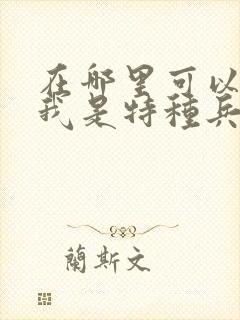 在哪里可以
我是特種兵
蘭斯文